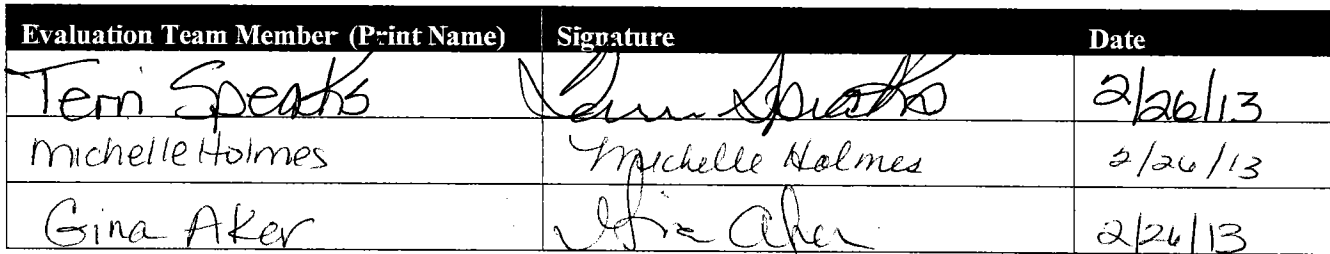 Evaluation Team Member (Print Name) Signature Date
Terri Speaks Terri Speaks 2/26/13
Michelle Holmes Michelle Holmes 2/26/13
Gina Aker Gina Aker 2/26/13